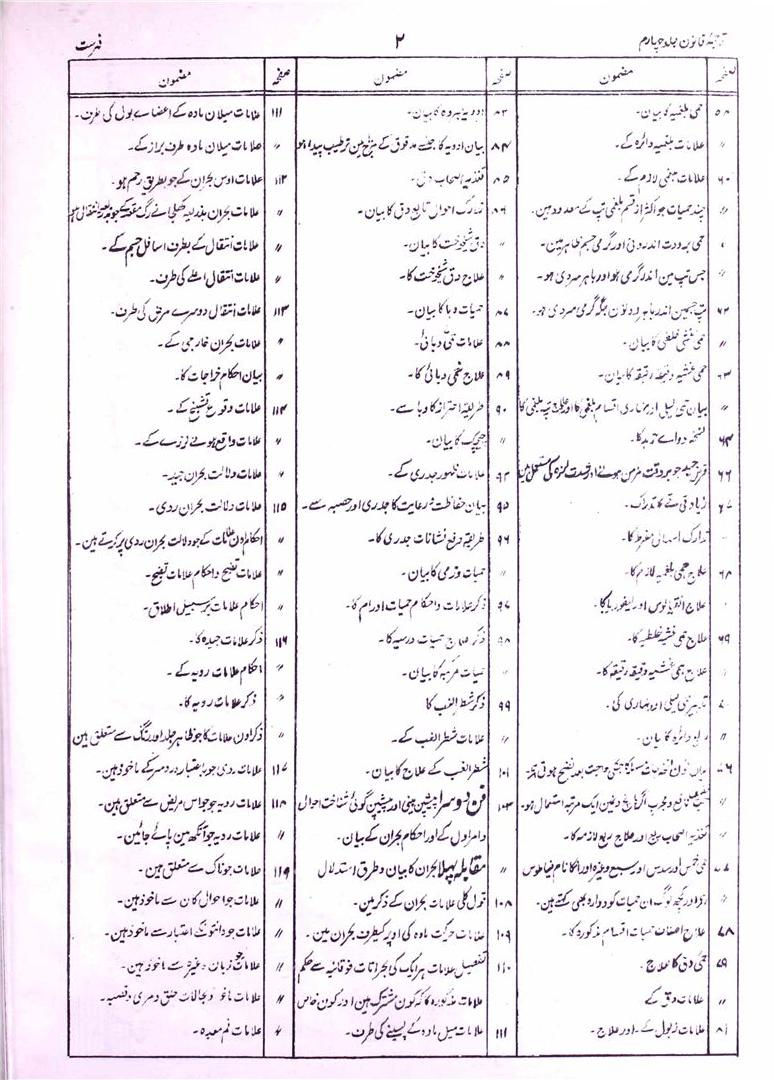 ترجمۂ قانون جلد چہارم
۲
فہرست
صفحہ
مضمون
صفحہ
مضمون
صفحہ
مضمون
۵۸ حمی بلغمیہ کا بیان۔
〃 علامات بلغمیہ دائرہ کے۔
۶۰ علامات بلغمی لازمہ کے۔
〃 چند حمیات جو اکثر از قسم بلغمی تپ کے معدود ہین۔
〃 حمی برودت اندرونی اور گرمی جسم ظاہر ہین۔
〃 جس تپ مین اندر گرمی ہو اور باہر سردی ہو۔
۶۲ تپ جسمین اندر باہر دونون جگہ گرمی سردی ہو۔
〃 حمی غشی خلطی کا بیان۔
۶۳ حمی غشیہ دقیقہ رقیقہ کا بیان۔
〃 بیان حمی لیل اور نہاری اقسام بلغمی کا اور علاج تپ بلغمی کا
۶۴ نسخہ دواے زبد کا۔
۶۶ قرص جید جو بر وقت مزمن ہونے اور شدت لرزہ کی مستعمل ہین
۶۷ زیادتی قے کا تدارک۔
تدارک اسہال مفرط کا۔
۶۸ علاج حمی بلغمیہ لازمہ کا۔
علاج انقیالوس اور لیفوریا کا۔
۶۹ علاج حمی غشیہ خلطیہ کا۔
علاج حمی غشیہ دقیقہ رقیقہ کا۔
۷۰ تدبیر حمی لیلی اور نہاری کی۔
〃 ربع دائرہ کا بیان۔
۷۶ بیان اون اغذیہ
اغذیہ اصحاب ربع اور علاج ربع لازمہ کا۔
۷۷ حمی خمس اور سدس اور سبع وغیرہ اور انکا نام فیماطوس
اور کچھ لوگ ان حمیات کو دوارہ بھی کہتے ہین۔
۷۸ علاج اصناف حمیات اقسام مذکورہ کا۔
۷۹ حمی دق کا علاج۔
〃 علامات دق کے
۸۱ علامات ذبول کے۔ اور علاج۔
۸۳ ادویہ مبردہ کا بیان۔
۸۴ بیان ادویہ کا جنسے مدقوق کے مزاج مین ترطیب پیدا ہو
۸۵ تغذیہ اصحاب دق۔
۸۶ تدارک احوال تابع دق کا بیان۔
〃 دق شیخوخت کا بیان۔
〃 علاج دق شیخوخت کا۔
۸۷ حمیات وبا کا بیان۔
۸۸ علامات حمی وبائی۔
۸۹ علاج حمی وبائی کا۔
۹۰ طریقۂ احتراز کا وبا سے۔
〃 چیچک کا بیان۔
۹۳ علامات ظہور جدری کے۔
۹۵ بیان حفاظت و رعایت کا جدری اور حصبہ سے۔
۹۶ طریقہ دفع نشانات جدری کا۔
〃 حمیات ورمی کا بیان۔
۹۷ ذکر علامات و احکام حمیات اورام کا۔
۹۸ ذکر علاج حمیات ورمیہ کا۔
〃 حمیات مرکبہ کا بیان۔
۹۹ ذکر شطر الغب کا
〃 علامات شطر الغب کے۔
۱۰۱ شطر الغب کے علاج کا بیان۔
۱۰۳ فن دوسرا پیش بینی اور پیشین گوئی شناخت احوال
و امر اول کے اور احکام بحران کے بیان۔
〃 مقالہ پہلا بحران کا بیان و طرق استدلال
۱۰۸ قول کلی علامات بحران کے ذکر مین۔
۱۰۹ علامات حرکت مادہ کی اوپر کیطرف بحران مین۔
۱۱۰ تفصیل علامات ہر ایک کی بحرانات فوقانیہ سے حکم
علامات مذکورہ کا کہ کون مشترک ہین اور کون خاص
۱۱۱ علامات میل مادہ کے پسینے کی طرف۔
۱۱۱ علامات میلان مادہ کے اعضاے بولی کی طرف۔
〃 علامات میلان مادہ طرف براز کے۔
۱۱۲ علامات اوس بحران کے جو بطریق رحم ہو۔
〃 علامات بحران بذریعہ کھلجانے رگ مقعد کے
〃 علامات انتقال کے بطرف اسافل جسم کے۔
〃 علامات انتقال اعلے کی طرف۔
۱۱۳ علامات انتقال دوسرے مرض کی طرف۔
〃 علامات بحران خارجی کے۔
〃 بیان احکام خراجات کا۔
۱۱۴ علامات وقوع تشنج کے۔
〃 علامات واقع ہونے لرزے کے۔
〃 علامات دلالت بحران جید۔
۱۱۵ علامات دلالت بحران ردی۔
〃 احکام ون علامات کے جو دلالت بحران ردی پر کرتے ہین۔
〃 علامات نضج و احکام علامات نضج۔
〃 احکام علامات بر سبیل اطلاق۔
۱۱۶ ذکر علامات جیدہ کا۔
〃 احکام علامات ردیہ کے۔
〃 ذکر علامات ردیہ کا۔
ذکر اون علامات کا جو ظاہر جلد اور رنگ سے متعلق ہین
۱۱۷ علامات ردی جو با عتبار درد سر کے ماخوذ ہین۔
۱۱۸ علامات ردیہ جو حواس مریض سے متعلق ہین۔
〃 علامات ردیہ جو آنکھ مین پائے جائین۔
۱۱۹ علامات جو ناک سے متعلق ہین۔
〃 علامات جو احوال کان سے ماخوذ ہین۔
〃 علامات جو دانتون کے اعتبار سے ماخوذ ہین۔
〃 علامات جو زبان وغیرہ سے ماخوذ ہین۔
〃 علامات ماخوذ بحالات حلق و مری و قصبہ۔
〃 علامات فم معدہ۔